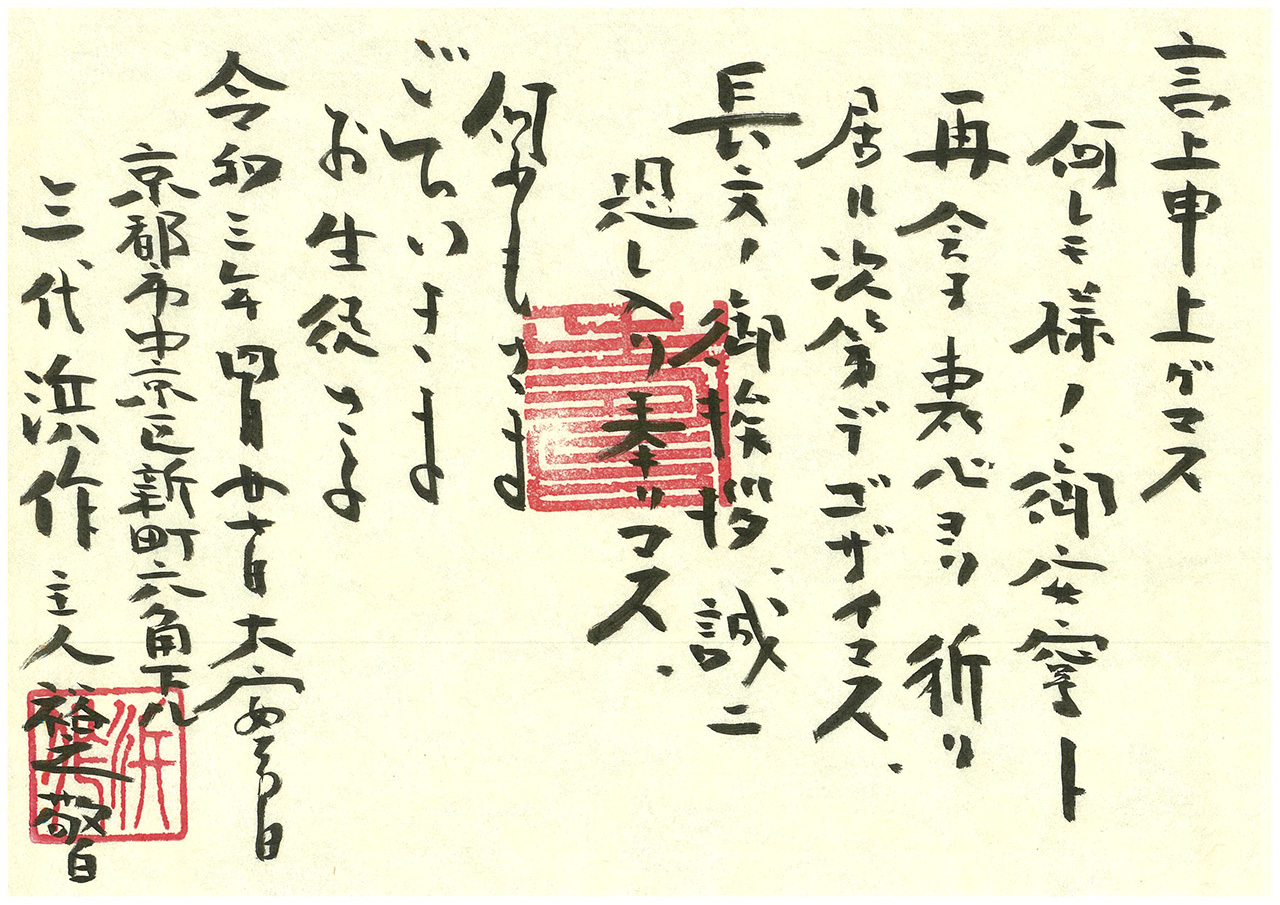 言上申上ゲマス
何レモ様ノ御安寧ト
再会ヲ衷心ヨリ祈リ
居ル次第デゴザイマス.
長文ノ御挨拶誠ニ
恐レ入リ奉リマス.
何れもさま
ごていしゅさま
お生徒さま
令和三年四月廿七日大安吉日
京都市中京区新町六角下ル
三代浜作主人 裕之敬白
浜